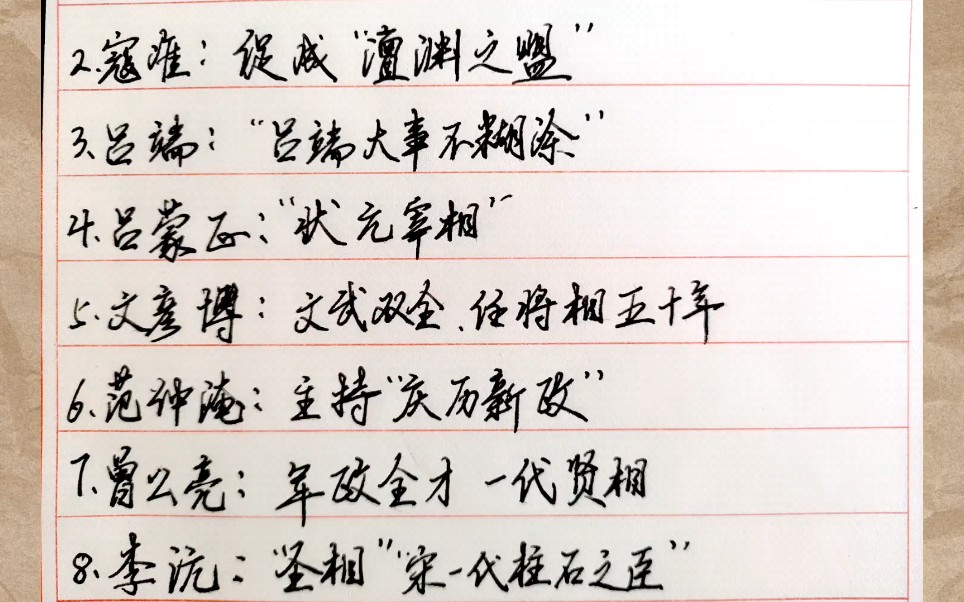 2.寇准：促成“澶渊之盟”
3.吕端：“吕端大事不糊涂”
4.吕蒙正：“状元宰相”
5.文彦博：文武双全、任将相五十年
6.范仲淹：主持“庆历新政”
7.曾公亮：军政全才 一代贤相
8.李沆：“圣相”“宋一代柱石之臣”